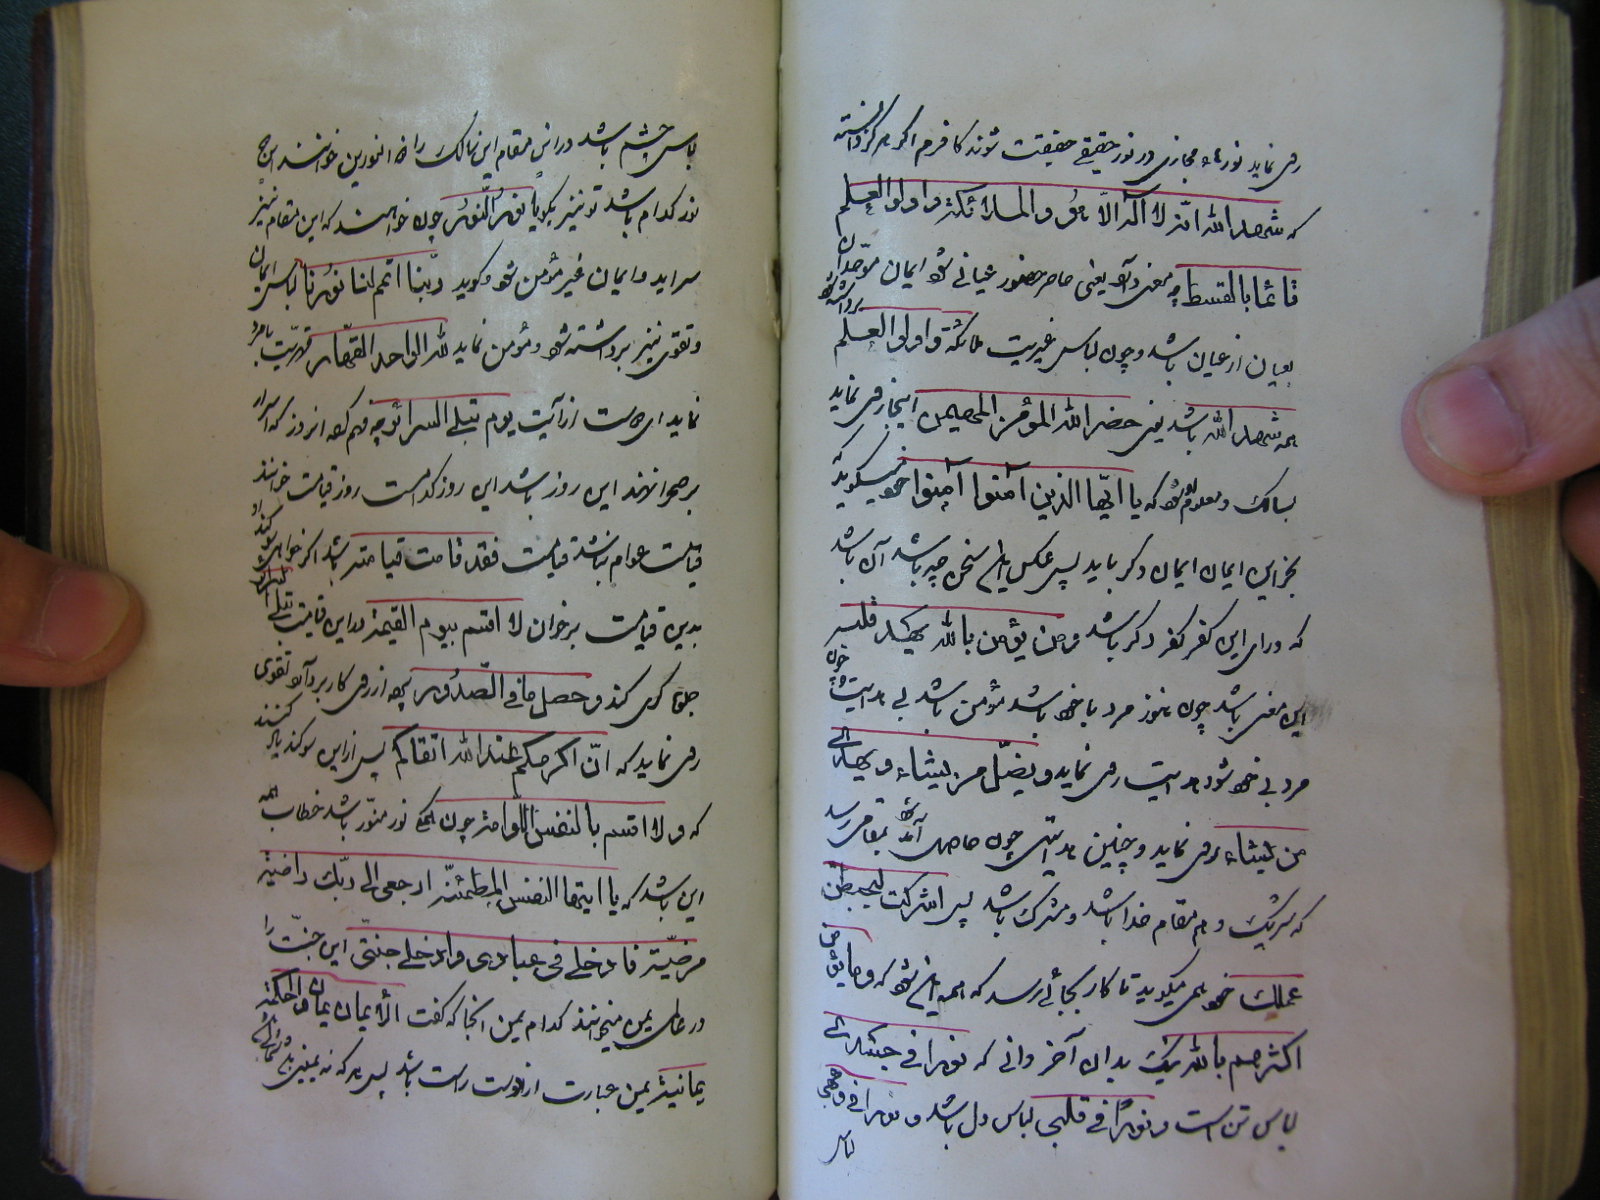 می نماید نورهاء مجازی در نور حقیقی حقیقت شوند کافرم اگر هرگز دانسته
که شهد الله انه لا اله الا هو والملائکة و اولو العلم
قائما بالقسط چه معنی دارد یعنی حاضر حضور عیانی شود ایمان موحدان
بعیان از عیان باشد و چون لباس غیریت ملائکة و اولو العلم برداشته
همه شهد الله باشد یعنی حضر الله المؤمن المهیمن اینجا رمی نماید
بسالک و معلوم شود که یا ایها الذین آمنوا آمنوا خود میگوید که
بجز این ایمان ایمان دگر باید پس عکس این سخن چه باشد آن باشد
که ورای این کفر کفر دگر باشد و من یؤمن بالله یهد قلبه
این معنی باشد چون هنوز مرد با خود باشد مؤمن باشد بی هدایت و چون
مرد بی خود شود هدایت رمی نماید و یضل من یشاء و یهدی
من یشاء رمی نماید و چنین هدایتی چون حاصل آمده شود بمقامی رسد
که شریک و هم مقام خدا باشد و مشرک باشد پس اشرکت لیحبطن
عملک خود همی میگوید تا کار بجائی رسد که همه این شود که و ما یؤمن
اکثرهم بالله نیک بدان آخر دانی که نورا فی جسدی
لباس تن است و نورا فی قلبی لباس دل باشد و نورا فی وجهی
لباس
لباس چشم باشد در این مقام این سالک را نور النورین خوانند ارجح
نور کدام باشد تو نیز بگو یا نور النور چون خواهند که این مقام نیز
سر آید و ایمان غیر مؤمن شود گوید ربنا اتمم لنا نورنا لباس ایمان
و تقوی نیز برداشته شود و مؤمن نماید لله الواحد القهار قهریت با مرد
نماید ای دوست از آیت یوم تبلی السرائر چه فهم کرده انروز که اسرار
بر صحرا نهند این روز باشد این روز کدامست روز قیامت خوانند
قیامت عوام نباشد قیامت فقد قامت قیامته باشد اگر خواهی سوگند
بدین قیامت برخوان لا اقسم بیوم القیمة در این قیامت تبلی السرائر
جلوه گری کند و حصل ما فی الصدور بچه از رمی کار بردارد تقوی
رمی نماید که ان اکرمکم عند الله اتقاکم پس از این سوگند یاد کنند
که و لا اقسم بالنفس اللوامة چون همگی نور منور باشد خطاب همه
این باشد که یا ایتها النفس المطمئنة ارجعی الی ربک راضیة
مرضیة فادخلی فی عبادی و ادخلی جنتی این جنت را
در عالم یمن میخوانند کدام یمن انجا که گفت الایمان یمان و الحکمة
یمانیة یمن عبارت از دست راست باشد پس بدان که نه یمینی باشد نه شمالی